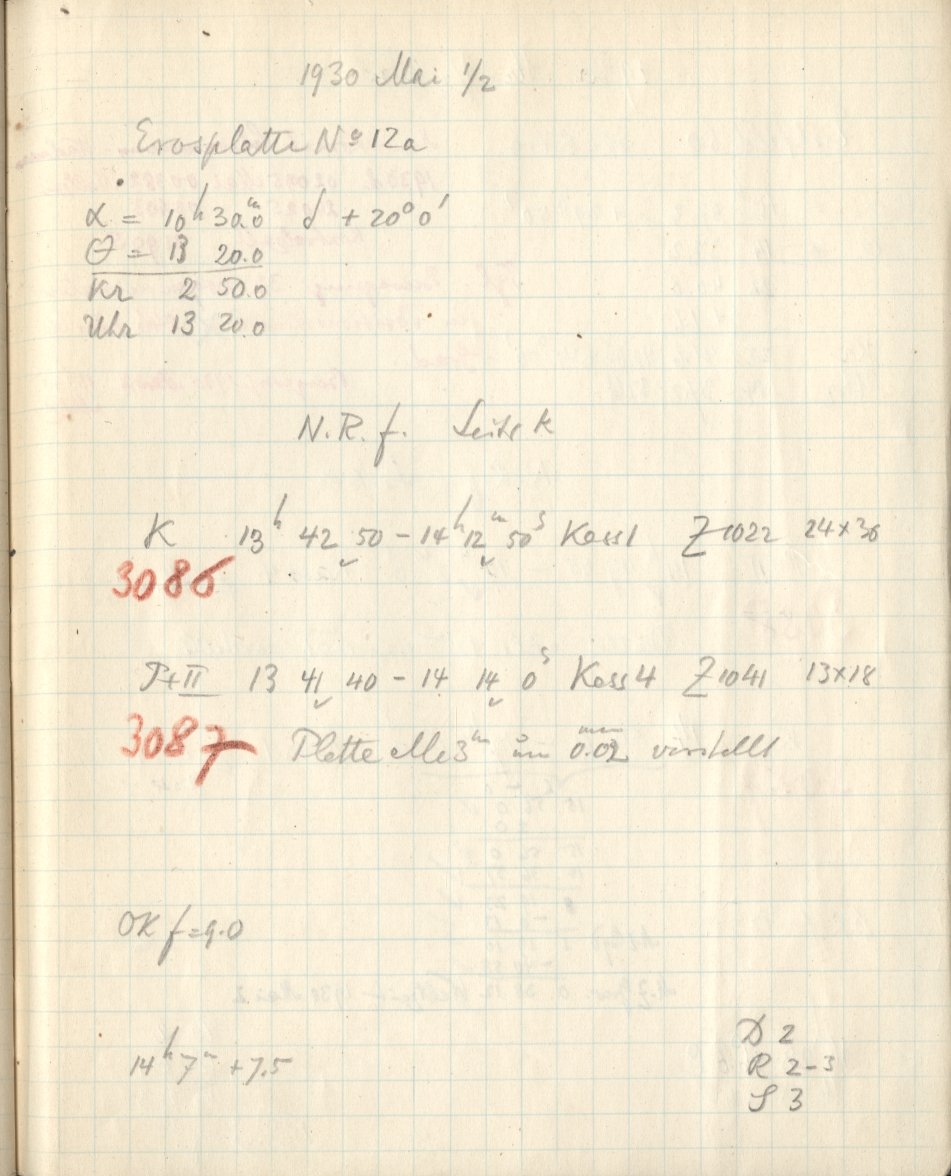 1930 Mai 1/2
Erosplatte No 12a
α = 10h 30m.0 δ +20° 0'
θ = 13 20.0
Kr 2 50.0
Uhr 13 20.0
N.R.f. Seite K
K 13h 42 50 - 14h 12m 50s Kass 1 Z 1022 24×36
3086
P+II 13 41 40 - 14 14 0s Kass 4 Z 1041 13×18
3087 Platte um 0.02 mm verstellt
OK f=9.0
14h 7m +7.5
D 2
R 2-3
S 3